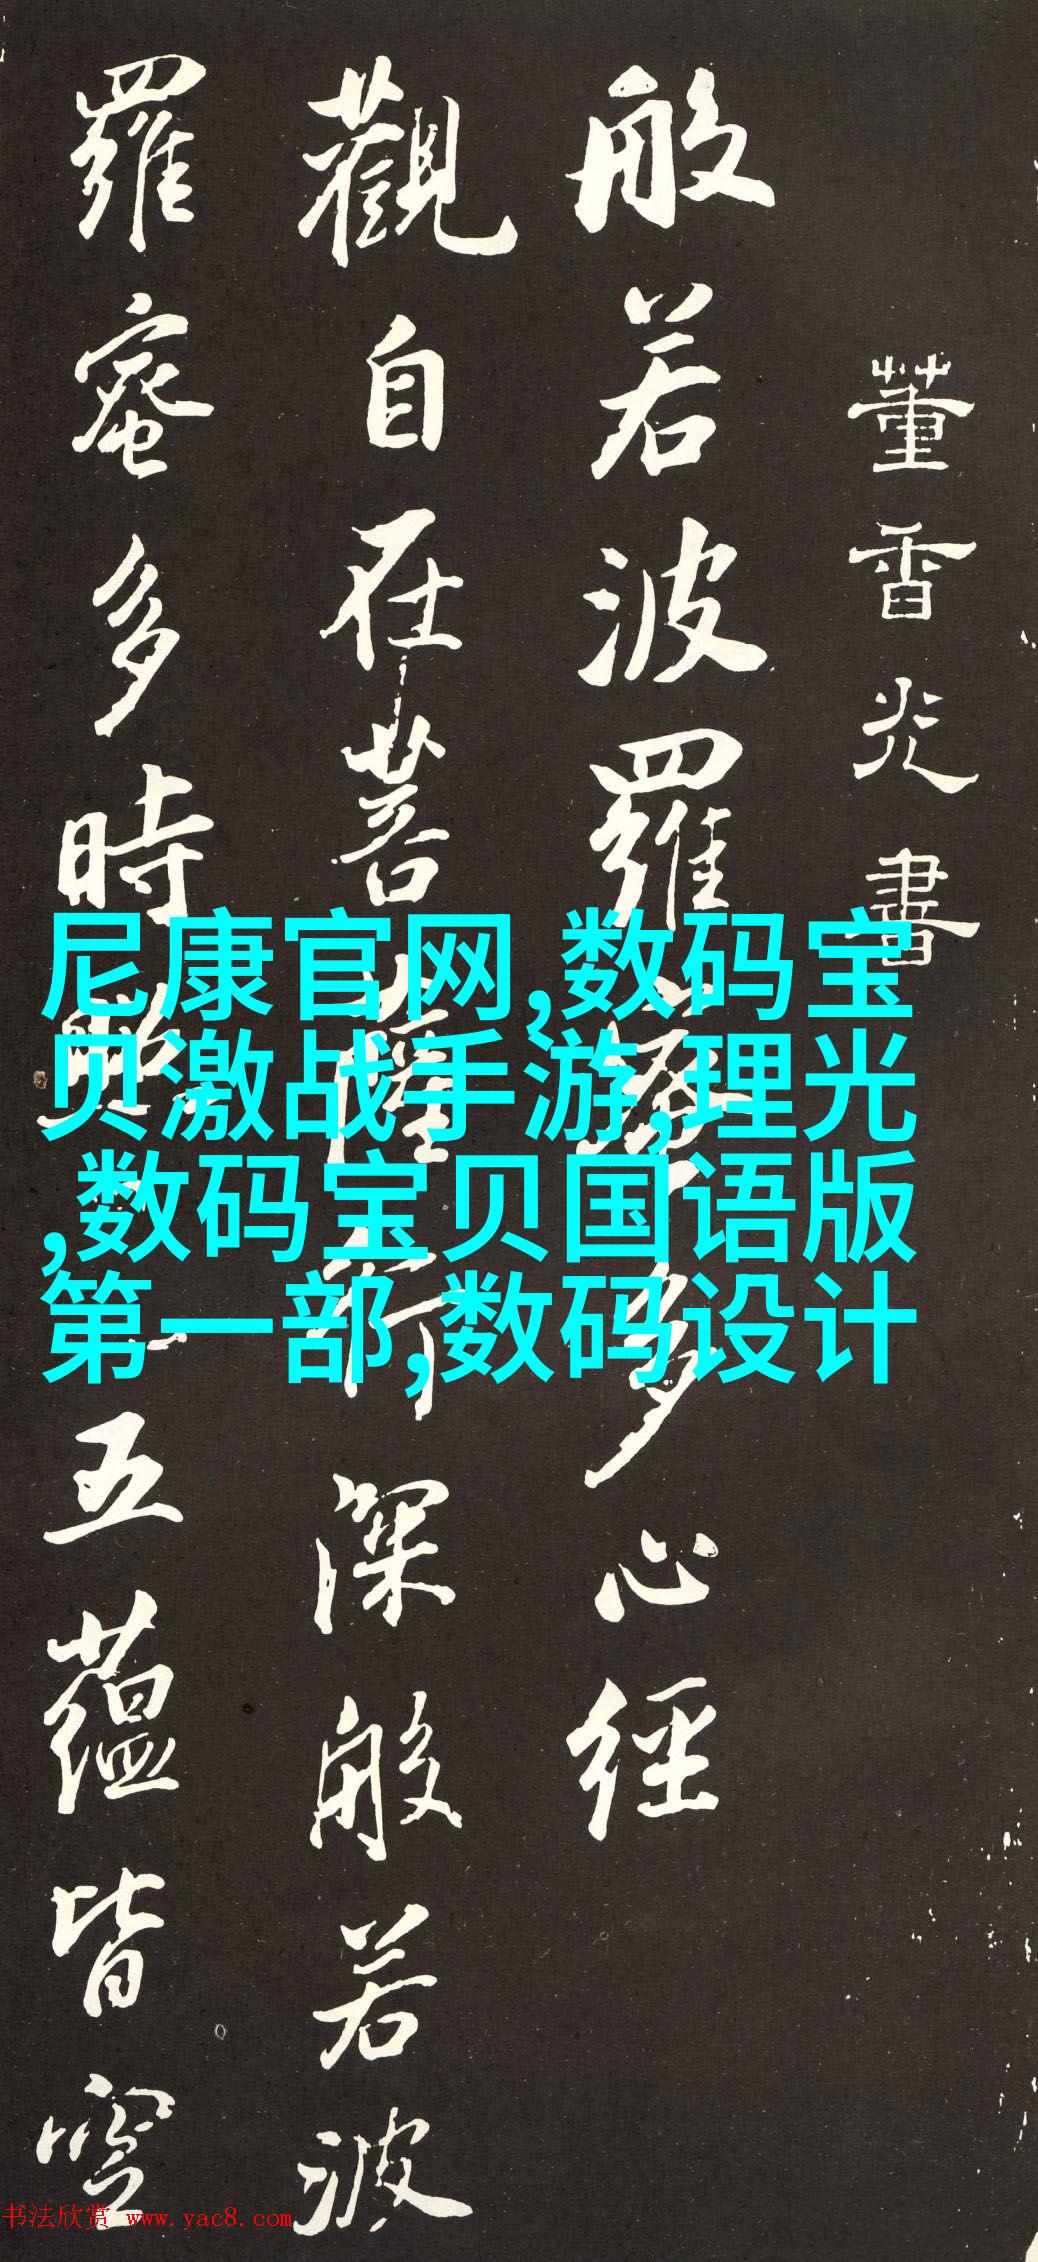 董香光書
般若波羅蜜多心經
觀自在菩薩行深般若波
羅蜜多時照五蘊皆空
尼康官网,数码宝
贝激战手游,理光
,数码宝贝国语版
第一部,数码设计
书法欣赏 www.yac8.com